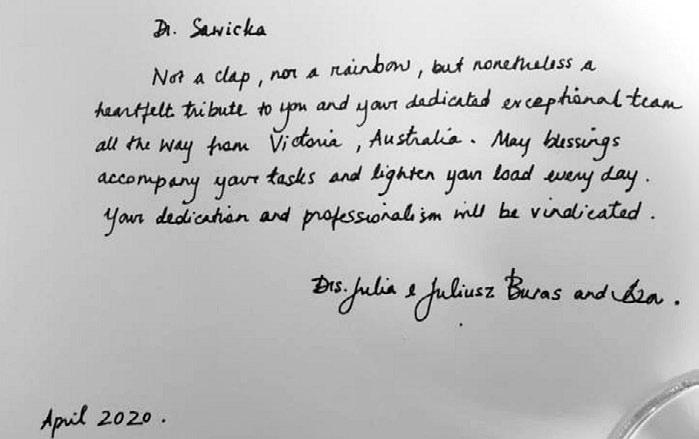 Dr. Sawicka
Not a clap, nor a rainbow, but nonetheless a
heartfelt tribute to you and your dedicated exceptional team
all the way from Victoria, Australia. May blessings
accompany your tasks and lighten your load every day.
Your dedication and professionalism will be vindicated.
Drs. Julia & Juliusz Buras and
April 2020.